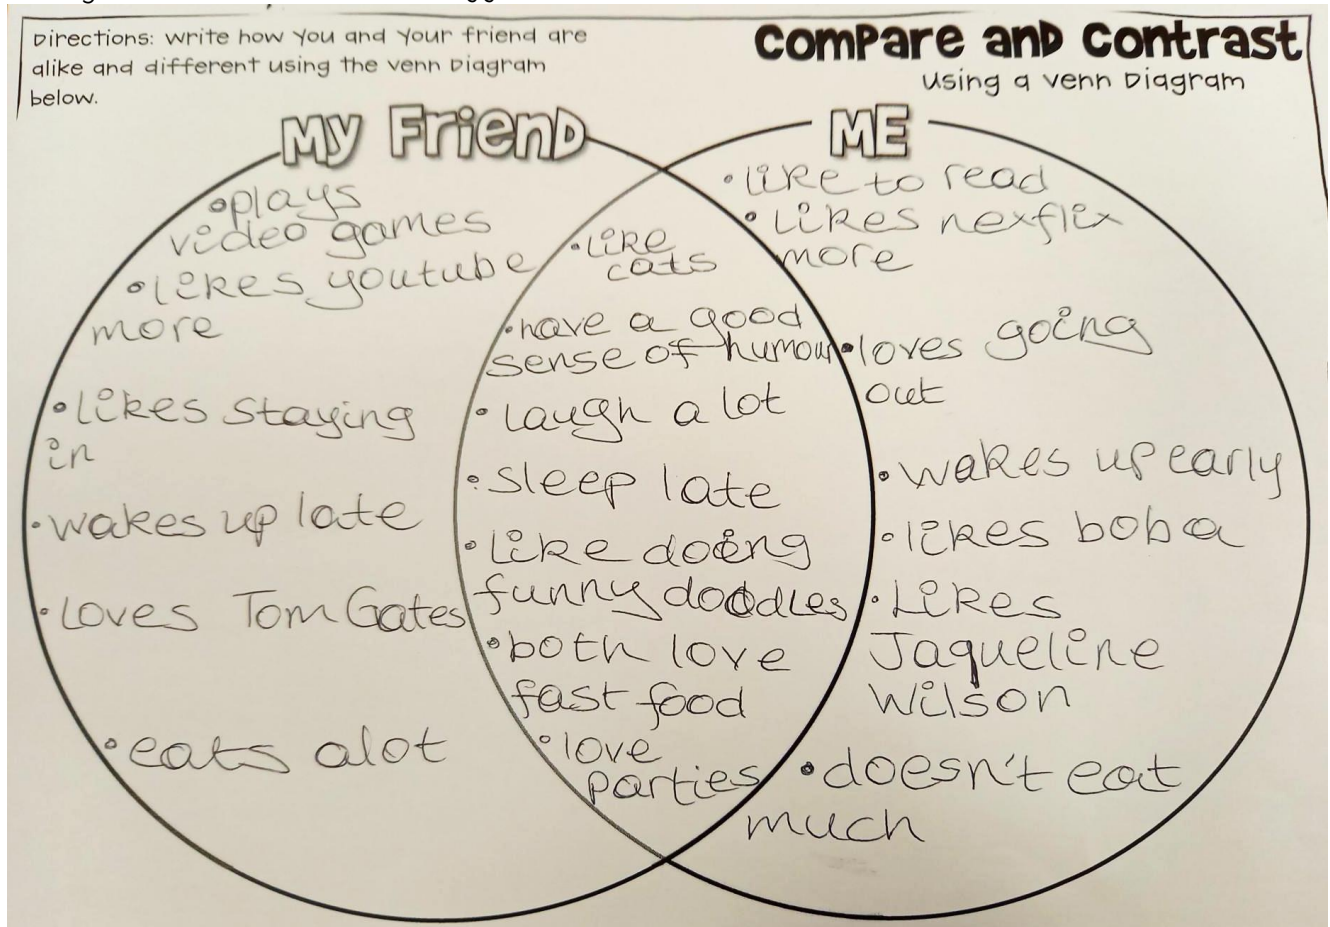 Directions: Write how you and your friend are
alike and different using the Venn Diagram
below.
Compare and Contrast
Using a Venn Diagram
My Friend
•plays
video games
•likes youtube
more
•likes staying
in
•wakes up late
•loves Tom Gates
•eats alot
•like
cats
•have a good
sense of humour
•laugh a lot
•sleep late
•like doing
funny doodles
•both love
fast food
•love
parties
ME
•like to read
•likes nexflix
more
•loves going
out
•wakes up early
•likes boba
•Likes
Jaqueline
Wilson
•doesn't eat
much